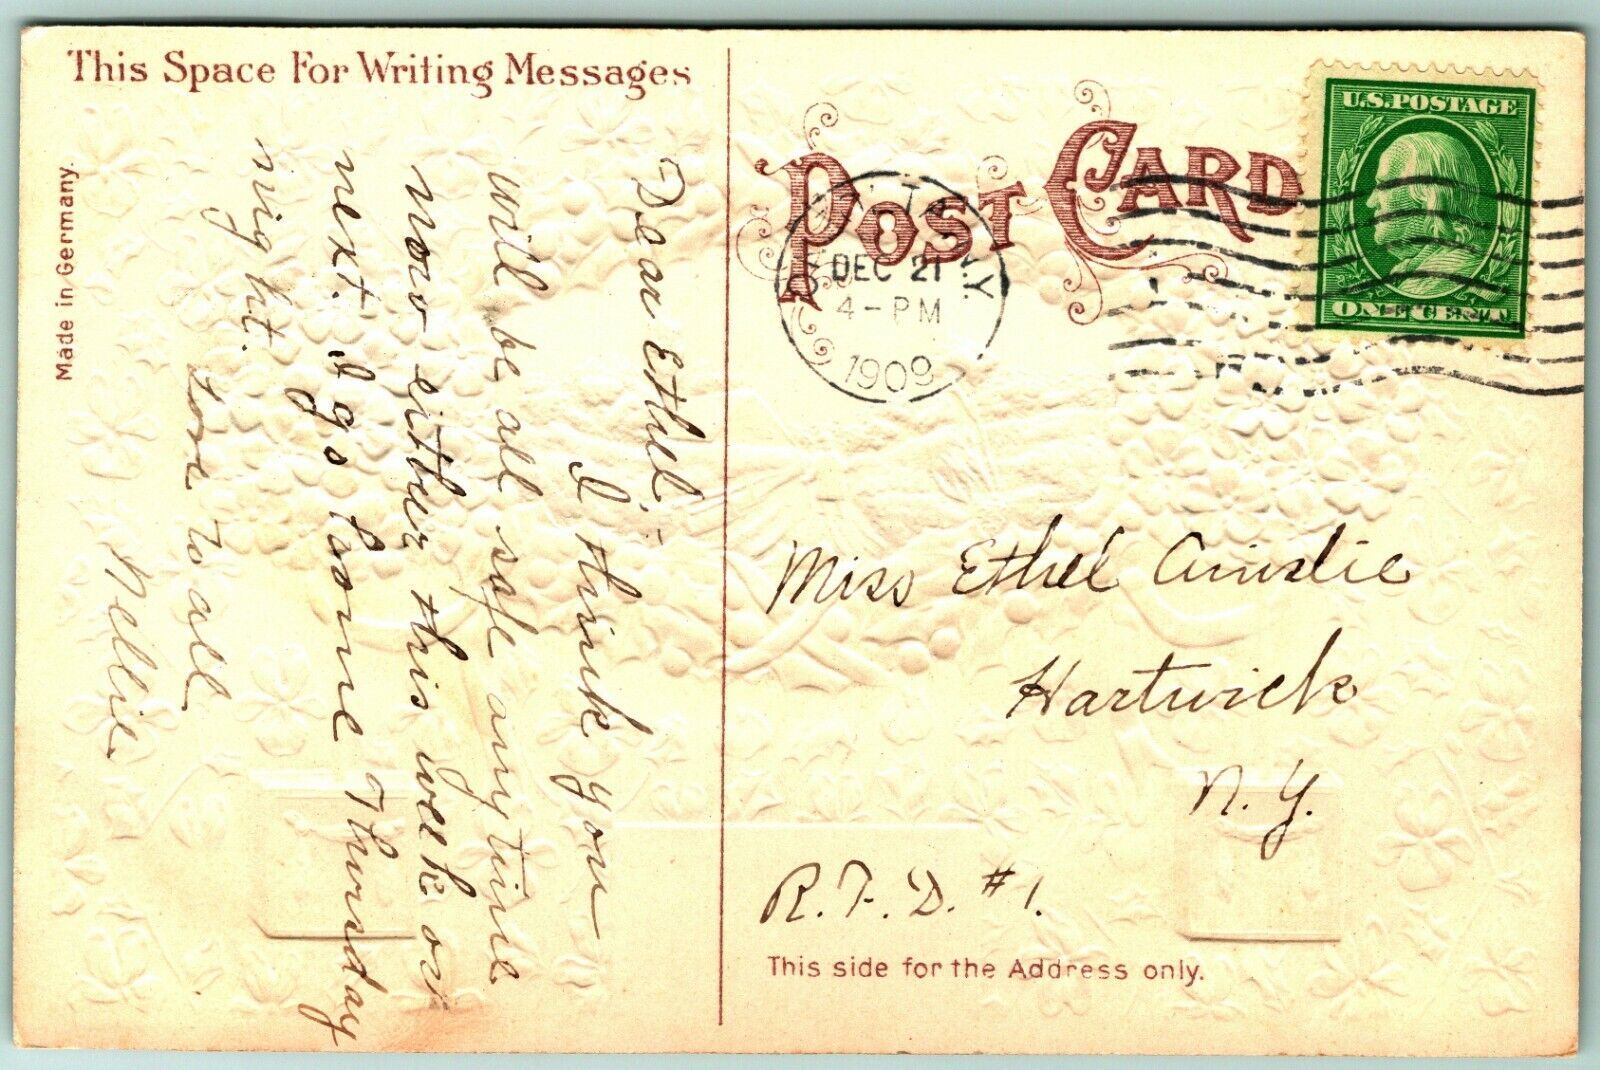 This Space For Writing Messages
Made in Germany.
Dear Ethel,
I think you
will be all safe anytime
now either this week or
next. I go home Thursday
night.
Love to all
Nellie.
POST CARD
DEC 21
4-PM
1909
N.Y.
U.S. POSTAGE
ONE CENT
Miss Ethel Ainslie
Hartwick
N. Y.
R. F. D. #1.
This side for the Address only.